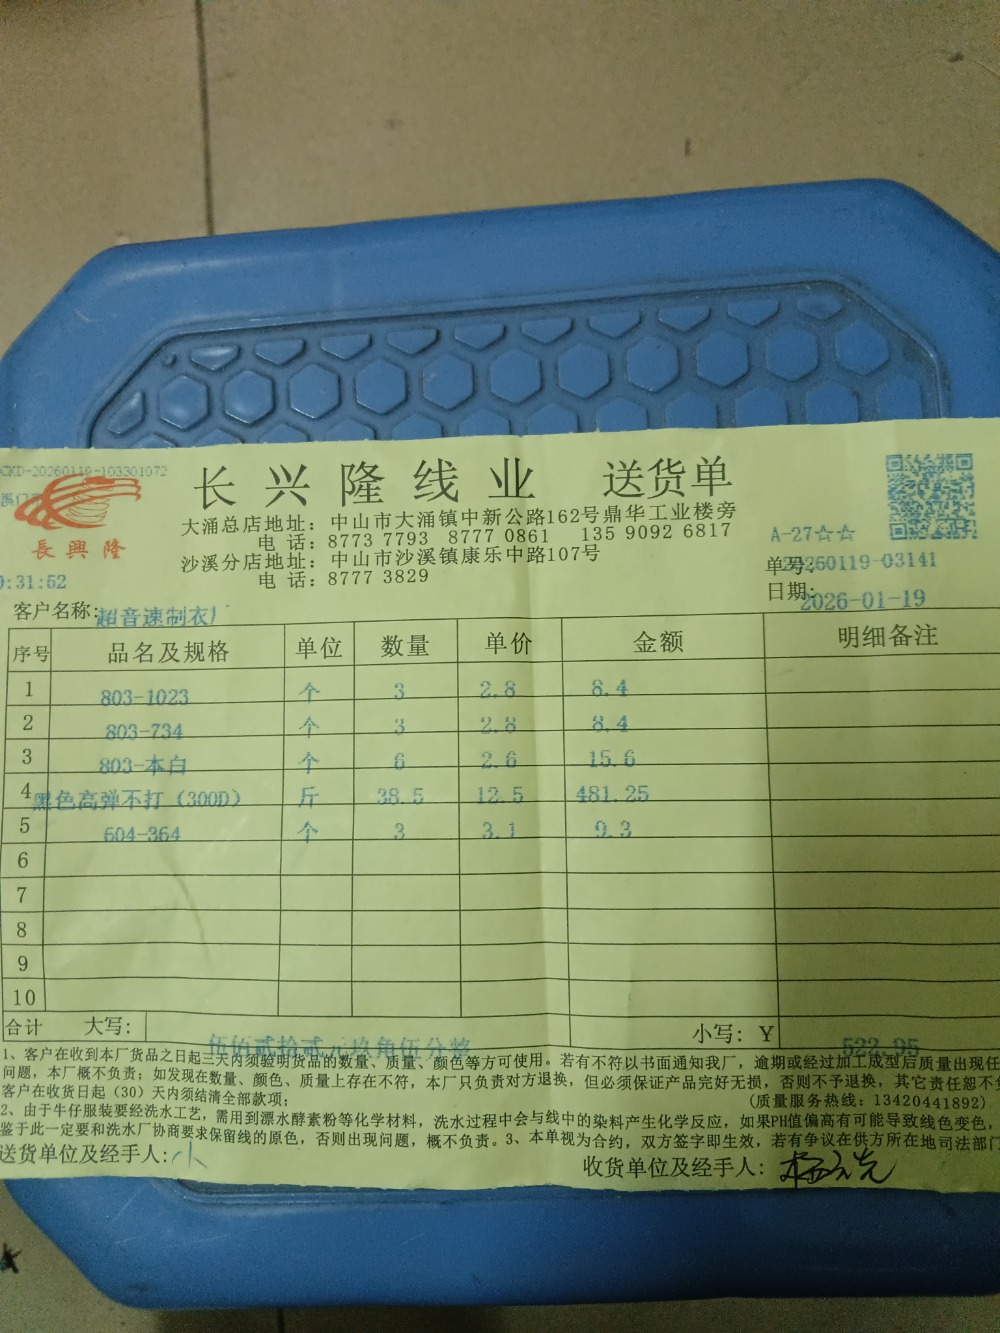 CKD-20260119-103301072
长兴隆线业 送货单
長興隆
大涌总店地址：中山市大涌镇中新公路162号鼎华工业楼旁
电 话：8773 7793 8777 0861 135 9092 6817
沙溪分店地址：中山市沙溪镇康乐中路107号
电 话：8777 3829
A-27☆☆
:31:52
单号：20260119-03141
日期：2026-01-19
客户名称：超音速制衣厂
序号 品名及规格 单位 数量 单价 金额 明细备注
1 803-1023 个 3 2.8 8.4
2 803-734 个 3 2.8 8.4
3 803-本白 个 6 2.6 15.6
4 黑色高弹不打（300D） 斤 38.5 12.5 481.25
5 604-364 个 3 3.1 9.3
6
7
8
9
10
合计 大写：伍佰贰拾贰元玖角伍分整 小写：￥ 522.95
1、客户在收到本厂货品之日起三天内须验明货品的数量、质量、颜色等方可使用。若有不符以书面通知我厂，逾期或经过加工成型后质量出现任
问题，本厂概不负责；如发现在数量、颜色、质量上存在不符，本厂只负责对方退换，但必须保证产品完好无损，否则不予退换，其它责任恕不负
客户在收货日起（30）天内须结清全部款项；
（质量服务热线：13420441892）
2、由于牛仔服装要经洗水工艺，需用到漂水酵素粉等化学材料，洗水过程中会与线中的染料产生化学反应，如果PH值偏高有可能导致线色变色，
鉴于此一定要和洗水厂协商要求保留线的原色，否则出现问题，概不负责。3、本单视为合约，双方签字即生效，若有争议在供方所在地司法部门
送货单位及经手人：小
收货单位及经手人：